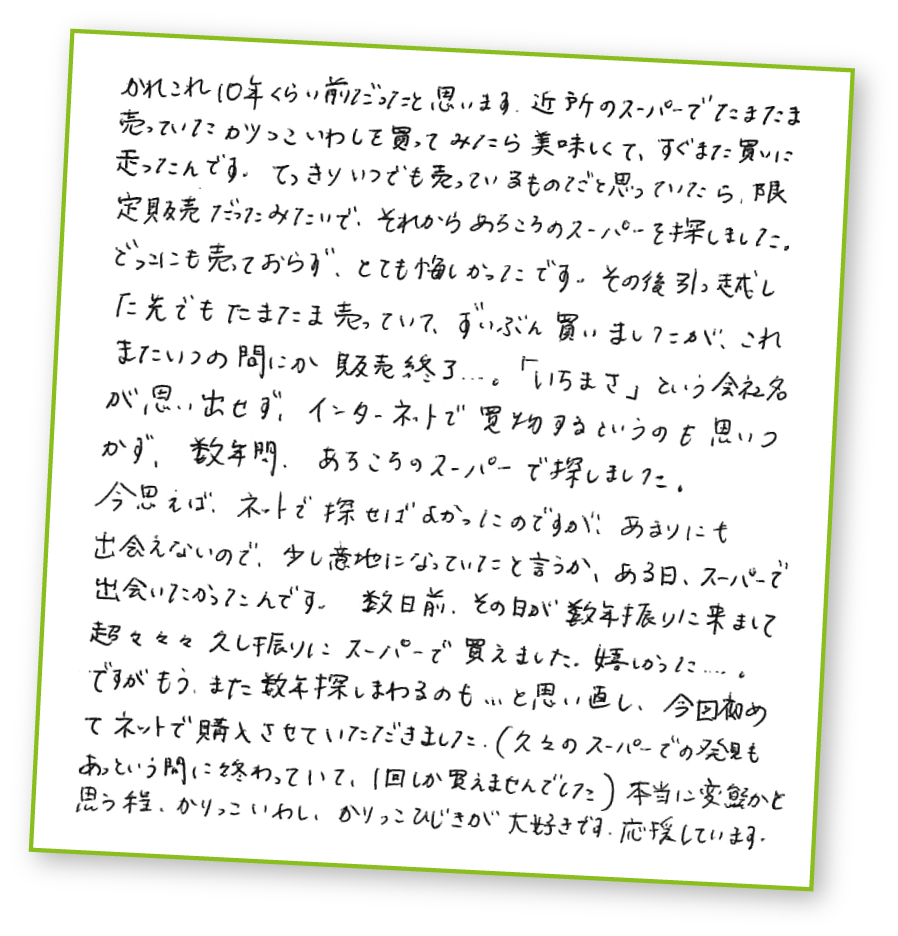 かれこれ10年くらい前だったと思います。近所のスーパーでたまたま
売っていたカリっこいわしを買ってみたら美味しくて、すぐまた買いに
走ったんです。てっきりいつでも売っているものだと思っていたら、限
定販売だったみたいで、それからあちこちのスーパーを探しました。
どっこにも売っておらず、とても悔しかったです。その後引っ越し
た先でもたまたま売っていて、ずいぶん買いましたが、これ
またいつの間にか販売終了…。「いちまさ」という会社名
が思い出せず、インターネットで買物するというのも思いつ
かず、数年間、あちこちのスーパーで探しました。
今思えば、ネットで探せばよかったのですが、あまりにも
出会えないので、少し意地になっていたと言うか、ある日、スーパーで
出会いたかったんです。数日前、その日が数年振りに来まして
超々々々久し振りにスーパーで買えました。嬉しかった……。
ですがもう、また数年探しまわるのも…と思い直し、今回初め
てネットで購入させていただきました。(久々のスーパーでの発見も
あっという間に終わっていて、1回しか買えませんでした)本当に変態かと
思う程、かりっこいわし、かりっこひじきが大好きです。応援しています。